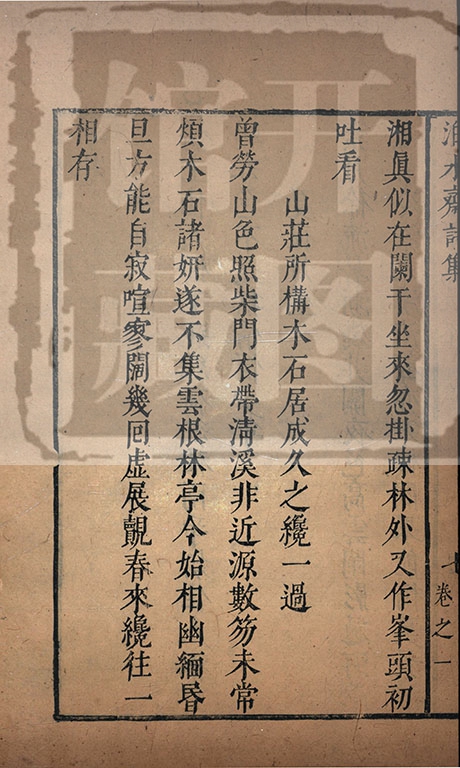 湘眞似在闌干坐來忽掛疎林外又作峯頭初
吐看
山莊所構木石居成久之纔一過
曾勞山色照柴門衣帶淸溪非近源數笏未常
煩木石諸妍遂不集雲根林亭今始相幽緬昏
旦方能自寂喧寥闊幾回虛展覿春來纔往一
相存
卷之一